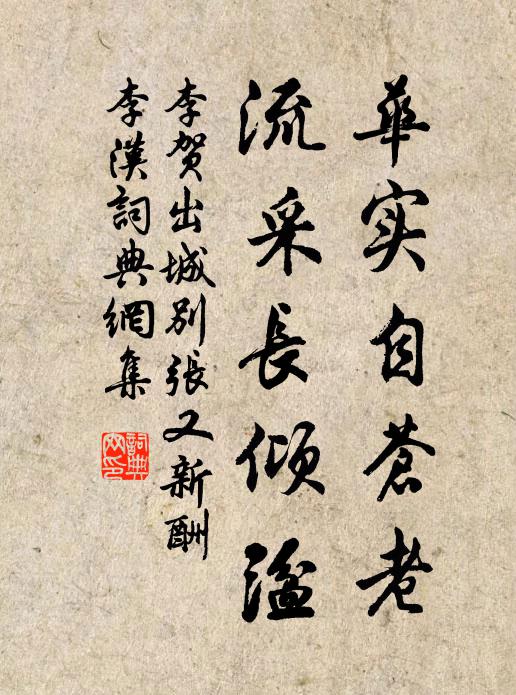 華实自蒼老
流采長傾湓
李贺出城别張又新酬
李漢詞典網集
詞典
网印